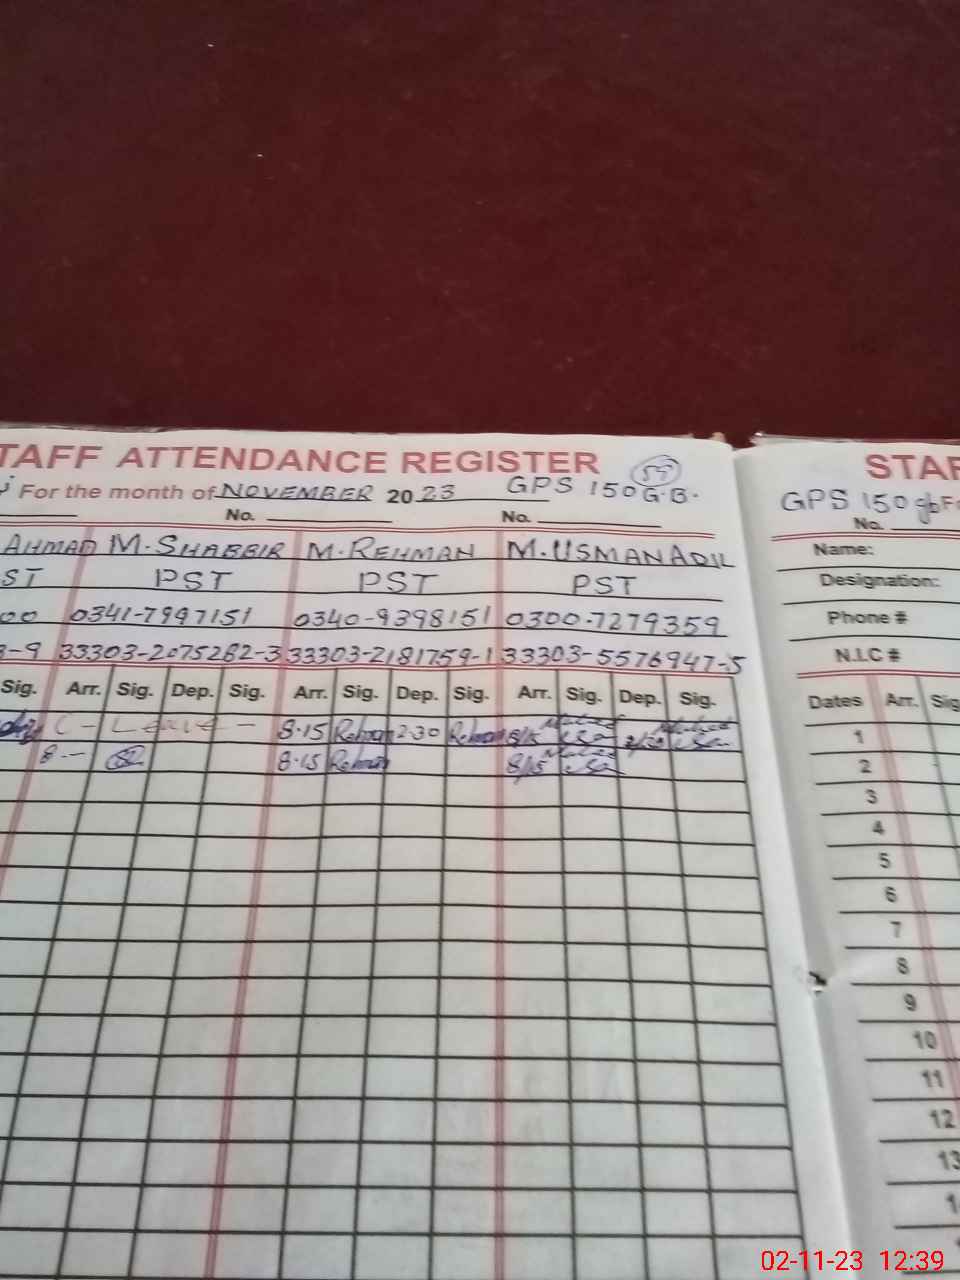 TAFF ATTENDANCE REGISTER 59
For the month of NOVEMBER 2023 GPS 150 G.B.
No. No.
AHMAD M. SHABBIR M. REHMAN M. USMAN ADIL
ST PST PST PST
00 0341-7997151 0340-9398151 0300-7279359
3-9 33303-2075282-3 33303-2181759-1 33303-5576947-5
Sig. Arr. Sig. Dep. Sig. Arr. Sig. Dep. Sig. Arr. Sig. Dep. Sig.
C - Leave - 8.15 Rehman 2.30 Rehman 8/15
8 - 8.15 Rehman 8/15
STAF
GPS 150 gb Fo
No.
Name:
Designation:
Phone #
N.I.C #
Dates Arr. Sig
1
2
3
4
5
6
7
8
9
10
11
12
13
02-11-23 12:39